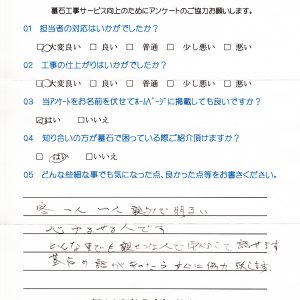 墓石工事サービス向上のためにアンケートのご協力お願いします。
Q1 担当者の対応はいかがでしたか？
□大変良い □良い □普通 □少し悪い □悪い
Q2 工事の仕上がりはいかがでしたか？
□大変良い □良い □普通 □少し悪い □悪い
Q3 当アンケートをお名前を伏せてホームページに掲載しても良いですか？
□はい □いいえ
Q4 知り合いの方が墓石で困っている際ご紹介頂けますか？
□はい □いいえ
Q5 どんな些細な事でも気になった点、良かった点等をお書きください。
客一人一人 親切で明るい
心 人です
どんな事でも親切な人で安心して話せます
墓石の話が すぐに協力致します